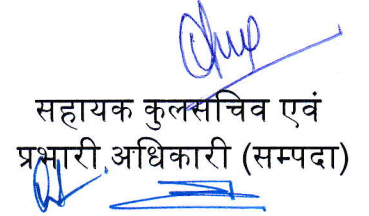 सहायक कुलसचिव एवं
प्रभारी अधिकारी (सम्पदा)